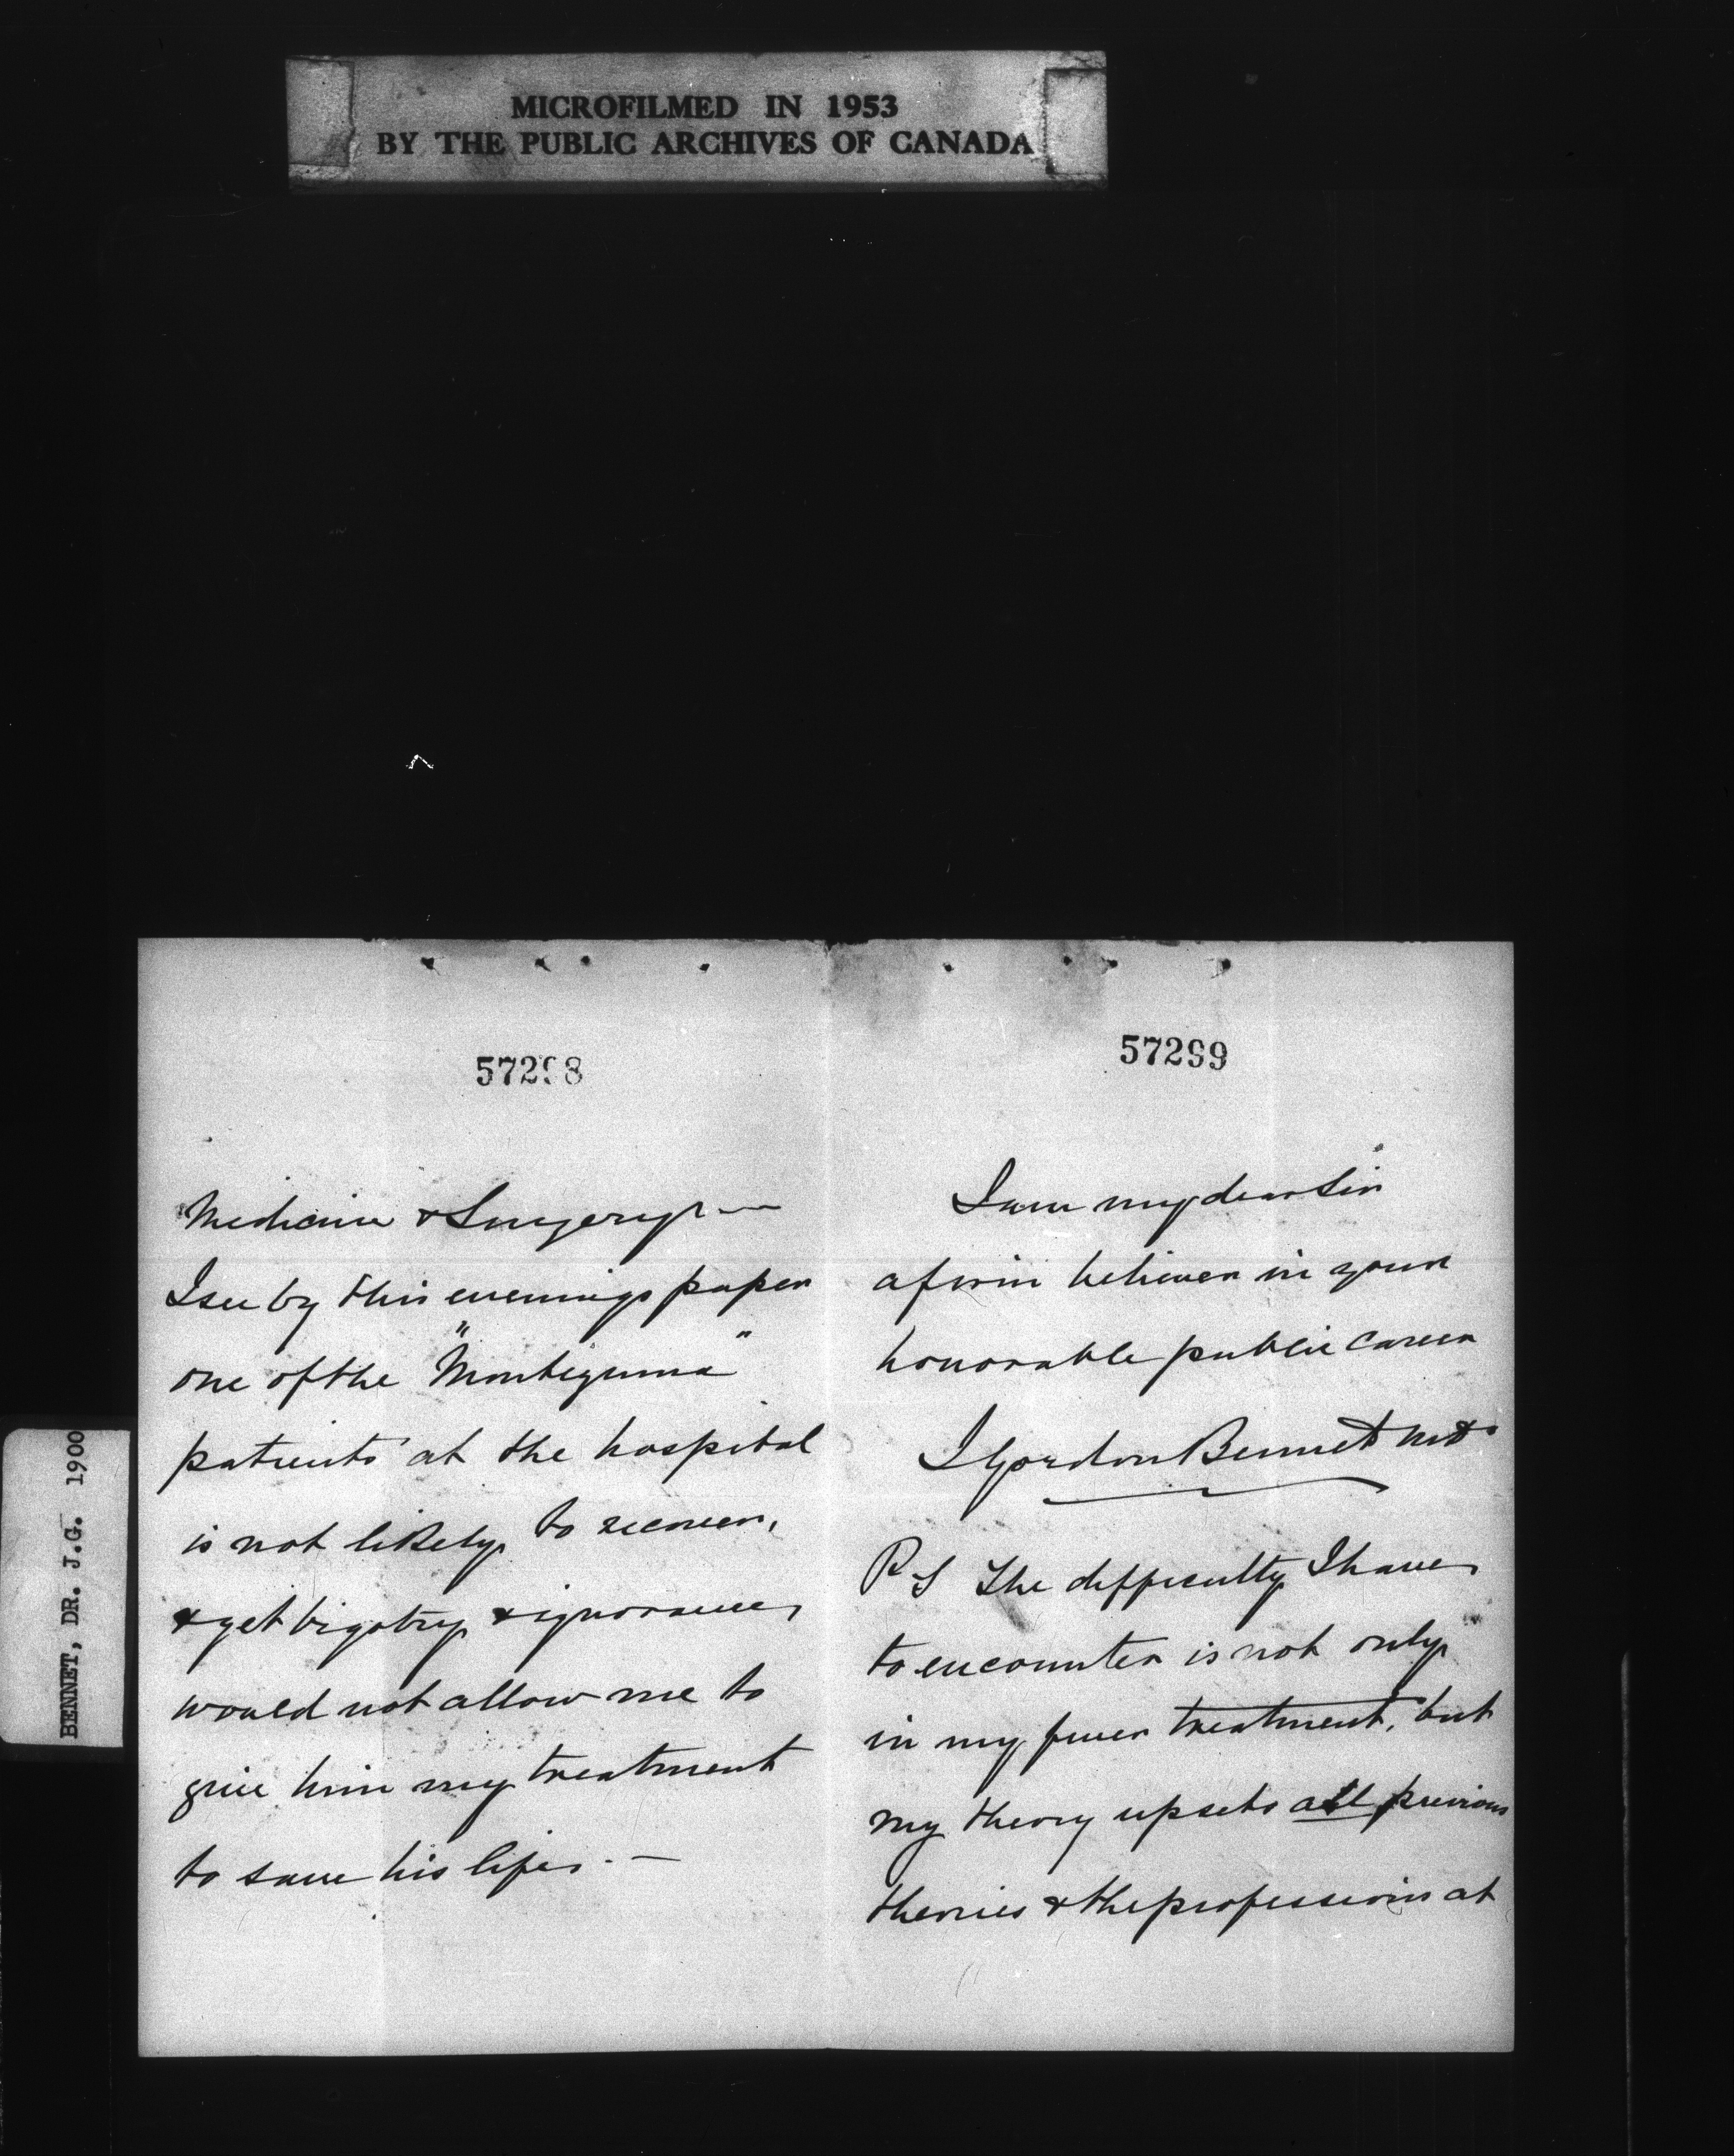 MICROFILMED IN 1953
BY THE PUBLIC ARCHIVES OF CANADA
BENNET, DR. J.G. 1900
57298
Medicine & Surgery —
I see by this evenings paper
one of the "Montezuma"
patients at the hospital
is not likely to recover,
& yet bigotry & ignorance,
would not allow me to
give him my treatment
to save his life. —
57299
I am my dear Sir
a firm believer in your
honorable public career
J Gordon Bennet MD
P S The difficulty I have
to encounter is not only
in my fever treatment, but
my theory upsets all previous
theories & the professions at